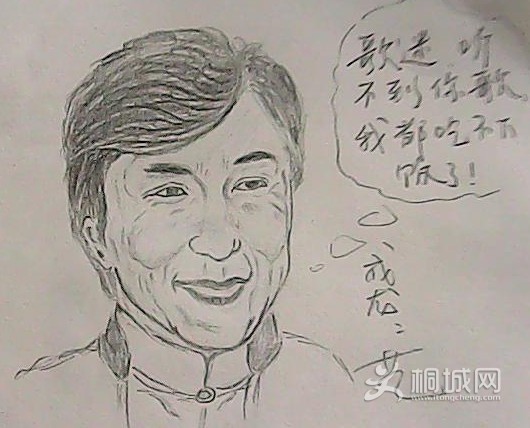 歌迷 听
不到你歌,
我都吃不下
饭了!
成龙
桐城网
www.itongcheng.com